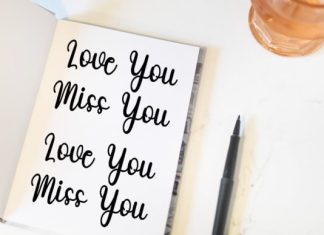 Love You
Miss You
Love You
Miss You